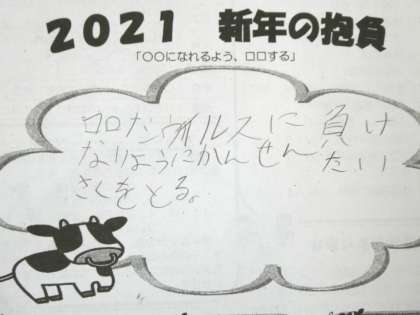 2021 新年の抱負
「〇〇になれるよう、□□する」
コロナウイルスに負け
ないようにかんせんたい
さくをとる。